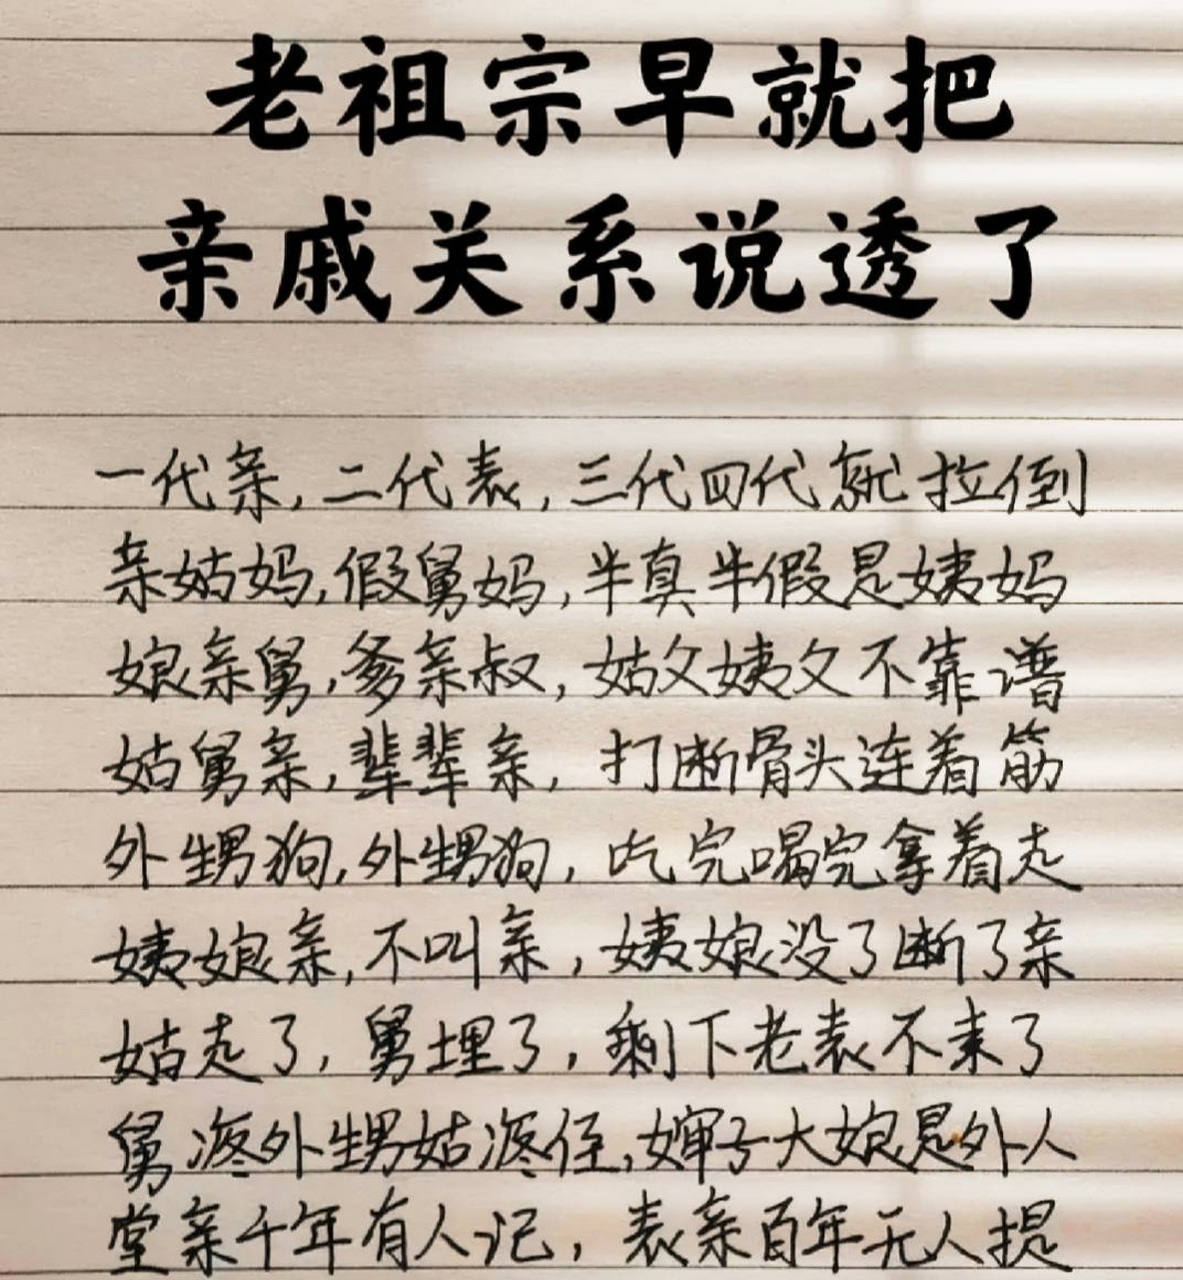 老祖宗早就把
亲戚关系说透了
一代亲,二代表,三代四代就拉倒
亲姑妈,假舅妈,半真半假是姨妈
娘亲舅,爹亲叔,姑父姨父不靠谱
姑舅亲,辈辈亲,打断骨头连着筋
外甥狗,外甥狗,吃完喝完拿着走
姨娘亲,不叫亲,姨娘没了断了亲
姑走了,舅埋了,剩下老表不来了
舅疼外甥姑疼侄,婶子大娘是外人
堂亲千年有人记,表亲百年无人提